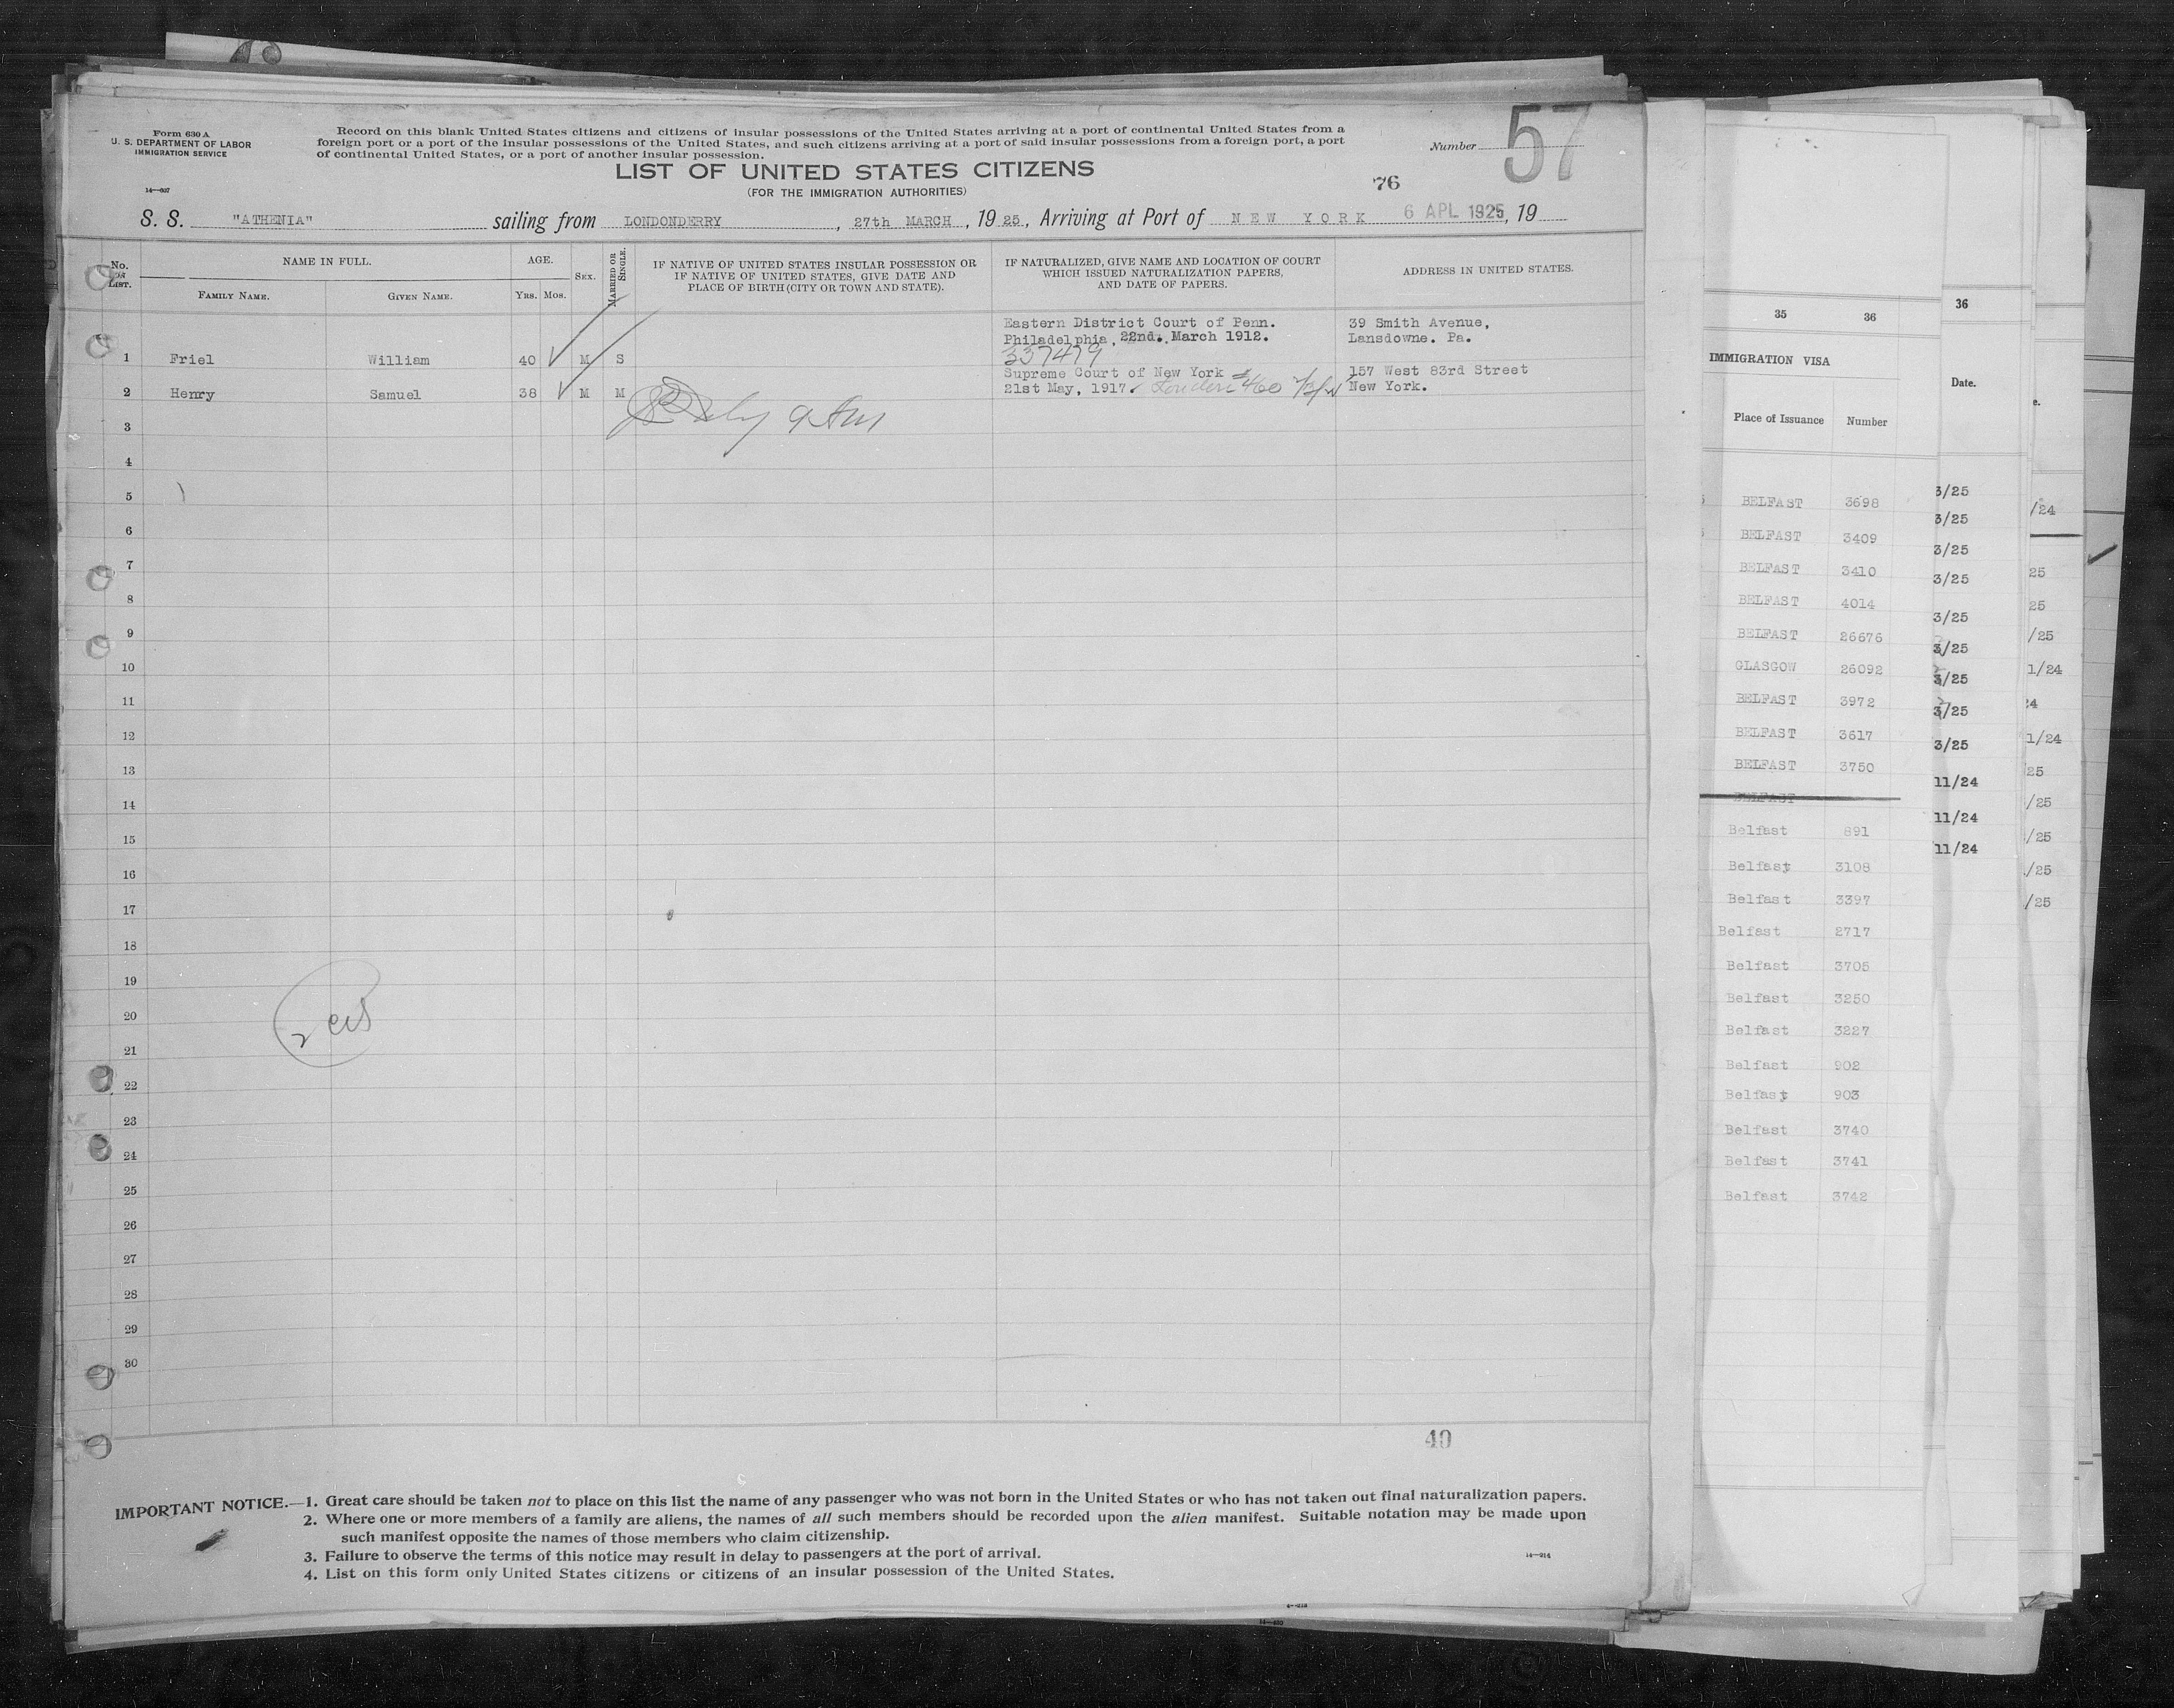 Form 630 A
U. S. DEPARTMENT OF LABOR
IMMIGRATION SERVICE
14—607
Record on this blank United States citizens and citizens of insular possessions of the United States arriving at a port of continental United States from a
foreign port or a port of the insular possessions of the United States, and such citizens arriving at a port of said insular possessions from a foreign port, a port
of continental United States, or a port of another insular possession.
Number 57
LIST OF UNITED STATES CITIZENS
(FOR THE IMMIGRATION AUTHORITIES)
76
S. S. "ATHENIA" sailing from LONDONDERRY, 27th MARCH, 1925, Arriving at Port of NEW YORK 6 APL 1925, 19
No. on List.
NAME IN FULL.
Family Name.
Given Name.
AGE.
Yrs. Mos.
Sex.
Married or Single.
IF NATIVE OF UNITED STATES INSULAR POSSESSION OR
IF NATIVE OF UNITED STATES, GIVE DATE AND
PLACE OF BIRTH (CITY OR TOWN AND STATE).
IF NATURALIZED, GIVE NAME AND LOCATION OF COURT
WHICH ISSUED NATURALIZATION PAPERS,
AND DATE OF PAPERS.
ADDRESS IN UNITED STATES.
Eastern District Court of Penn. 39 Smith Avenue,
Philadelphia, 22nd. March 1912. Lansdowne. Pa.
1 Friel William 40 M S 337479
Supreme Court of New York 157 West 83rd Street
2 Henry Samuel 38 M M 21st May, 1917. New York.
3
4
5
6
7
8
9
10
11
12
13
14
15
16
17
18
19
20
21
22
23
24
25
26
27
28
29
30
40
IMPORTANT NOTICE.—1. Great care should be taken not to place on this list the name of any passenger who was not born in the United States or who has not taken out final naturalization papers.
2. Where one or more members of a family are aliens, the names of all such members should be recorded upon the alien manifest. Suitable notation may be made upon
such manifest opposite the names of those members who claim citizenship.
3. Failure to observe the terms of this notice may result in delay to passengers at the port of arrival.
4. List on this form only United States citizens or citizens of an insular possession of the United States.
14—914
35 36
IMMIGRATION VISA
Place of Issuance Number
BELFAST 3698
BELFAST 3409
BELFAST 3410
BELFAST 4014
BELFAST 26676
GLASGOW 26092
BELFAST 3972
BELFAST 3617
BELFAST 3750
BELFAST
Belfast 891
Belfast 3108
Belfast 3397
Belfast 2717
Belfast 3705
Belfast 3250
Belfast 3227
Belfast 902
Belfast 903
Belfast 3740
Belfast 3741
Belfast 3742
36
Date.
3/25
3/25
3/25
3/25
3/25
3/25
3/25
3/25
3/25
11/24
11/24
11/24
e.
/24
25
25
/25
1/24
24
1/24
25
/25
/25
/25
/25